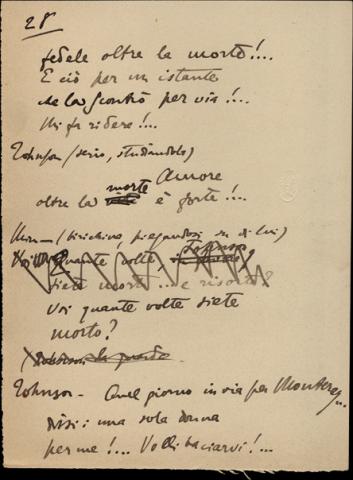 28
fedele oltre la morte!...
E ciò per un istante
che la scontrò per via!...
Mi fa ridere!...
Johnson (serio, studiandola)
Amore
oltre la morte è forte!...
Min – (birichina, piegandosi su di lui)
quante volte,
siete morto... e risorto?
Voi quante volte siete
morto?
Johnson la guarda.
Johnson – Quel giorno in via per Monterey..
dissi: una sola donna
per me!... Volli baciarvi!...